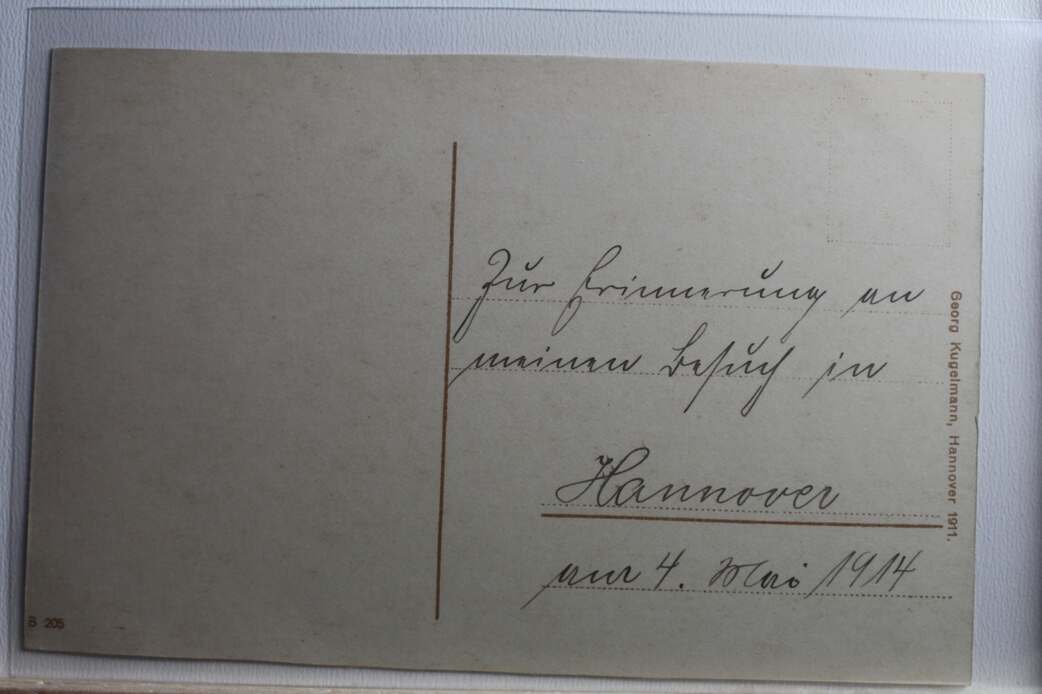 Zur Erinnerung an
meinen Besuch in
Hannover
am 4. Mai 1914
Georg Kugelmann, Hannover 1911.
S 205